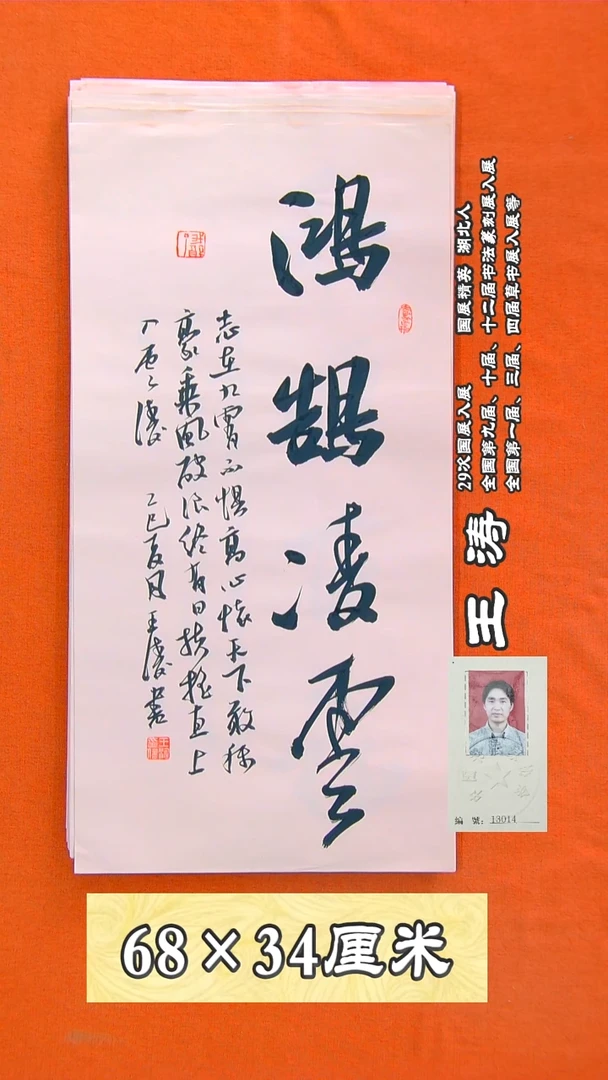 鴻鵠凌雲
志在九霄不惧高心懷天下敢称
豪乘風破浪终有日扶摇直上
乙巳夏月王濤书
王涛
29次国展入展 国展精英 湖北人
全国第九届、十届、十二届书法篆刻展入展
全国第一届、三届、四届草书展入展等
編 號：13014
68×34厘米